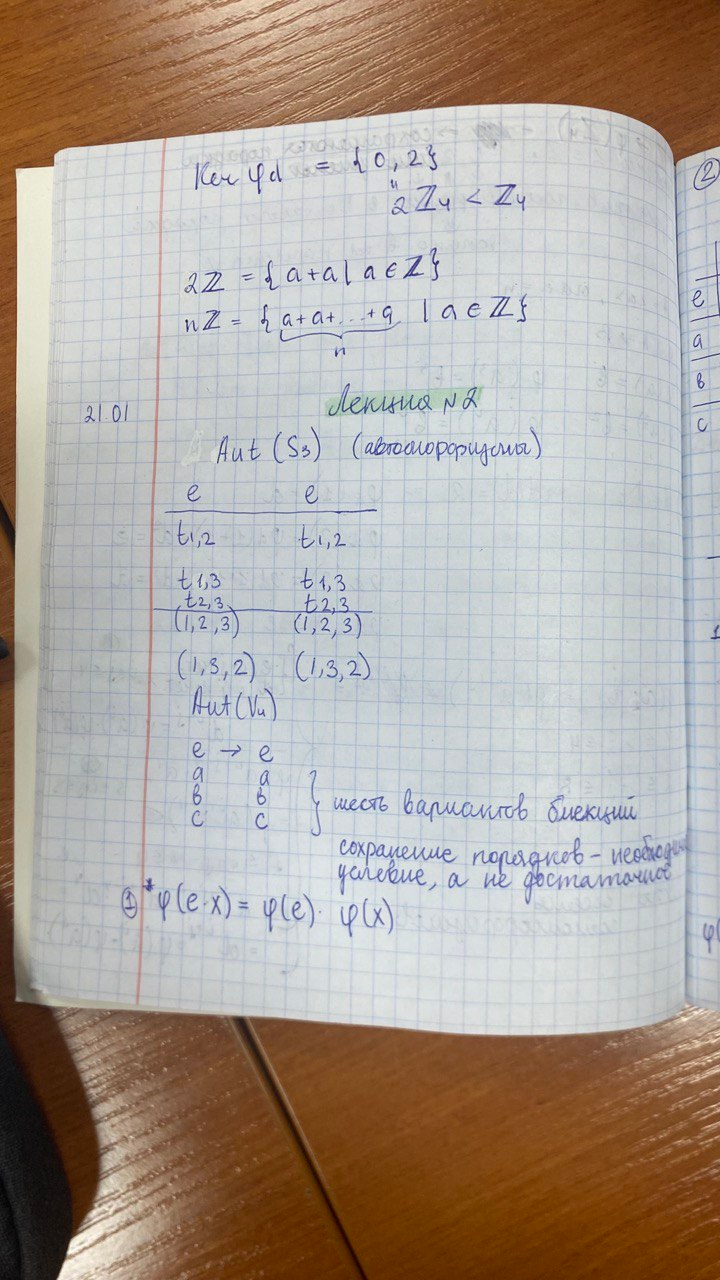 Ker φd = {0, 2}
"
2ℤ₄ < ℤ₄
2ℤ = {a+a | a ∈ ℤ}
nℤ = {a+a+...+a | a ∈ ℤ}
n
21.01
Лекция №2
Aut (S₃) (автоморфизмы)
e e
t1,2 t1,2
t1,3 t1,3
t2,3 t2,3
(1,2,3) (1,2,3)
(1,3,2) (1,3,2)
Aut(V₄)
e → e
a a
в в
c c
} шесть вариантов биекций
сохранение порядков – необходи
условие, а не достаточное
① * φ(e·x) = φ(e) · φ(x)
②
e
a
в
c
1
φ(